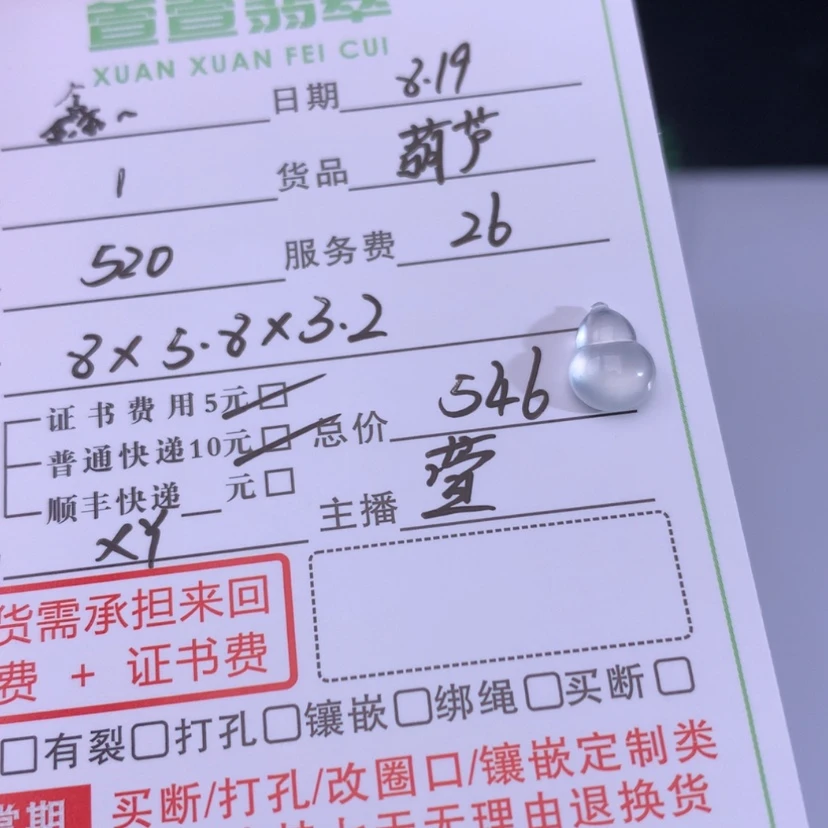 萱萱翡翠
XUAN XUAN FEI CUI
日期 8.19
1 货品 葫芦
520 服务费 26
8×5.8×3.2
证书费用5元
普通快递10元 总价 546
顺丰快递__元
主播 萱
XY
货需承担来回
费 + 证书费
有裂 打孔 镶嵌 绑绳 买断
买断/打孔/改圈口/镶嵌定制类
无理由退换货